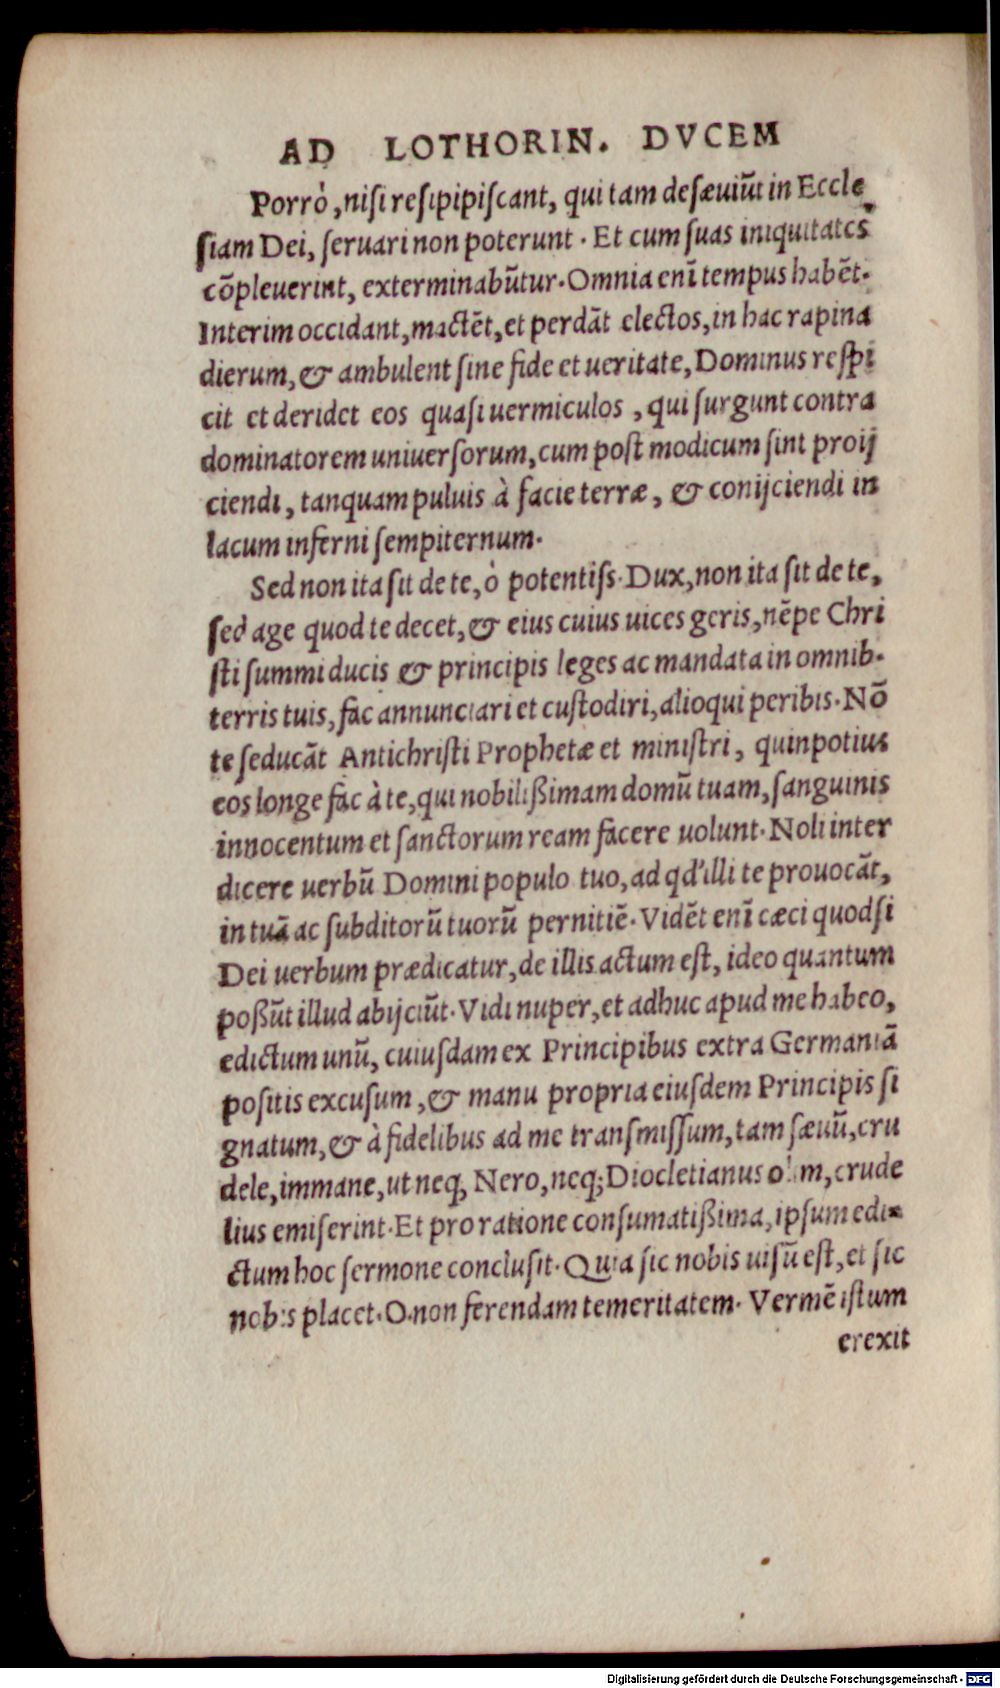 AD LOTHORIN. DVCEM
Porrò, nisi resipipiscant, qui tam desæuiũt in Eccle
siam Dei, seruari non poterunt. Et cum suas iniquitates
cõpleuerint, exterminabũtur. Omnia enĩ tempus habẽt.
Interim occidant, mactẽt, et perdãt electos, in hac rapina
dierum, & ambulent sine fide et ueritate, Dominus respi
cit et deridet eos quasi uermiculos, qui surgunt contra
dominatorem uniuersorum, cum post modicum sint proij
ciendi, tanquam puluis à facie terræ, & conijciendi in
lacum inferni sempiternum.
Sed non ita sit de te, ò potentiss. Dux, non ita sit de te,
sed age quod te decet, & eius cuius uices geris, nẽpe Chri
sti summi ducis & principis leges ac mandata in omnib.
terris tuis, fac annunciari et custodiri, alioqui peribis. Nõ
te seducãt Antichristi Prophetæ et ministri, quin potius
eos longe fac à te, qui nobilißimam domũ tuam, sanguinis
innocentum et sanctorum ream facere uolunt. Noli inter
dicere uerbũ Domini populo tuo, ad qd' illi te prouocãt,
in tuã ac subditorũ tuorũ pernitiẽ. Vidẽt enĩ cæci quod si
Dei uerbum prædicatur, de illis actum est, ideo quantum
poßũt illud abijciũt. Vidi nuper, et adhuc apud me habeo,
edictum unũ, cuiusdam ex Principibus extra Germaniã
positis excusum, & manu propria eiusdem Principis si
gnatum, & à fidelibus ad me transmissum, tam sæuũ, cru
dele, immane, ut neq; Nero, neq; Diocletianus olim, crude
lius emiserint. Et pro ratione consumatißima, ipsum edi=
ctum hoc sermone conclusit. Quia sic nobis uisũ est, et sic
nobis placet. O non ferendam temeritatem. Vermẽ istum
erexit
Digitalisierung gefördert durch die Deutsche Forschungsgemeinschaft - DFG